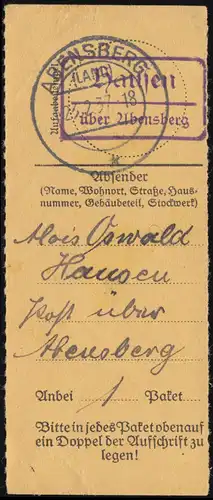 ABENSBERG
(LAND)
Hausen
über Abensberg
Absender
(Name, Wohnort, Straße, Haus-
nummer, Gebäudeteil, Stockwerk)
Alois Oswald
Hausen
Post über
Abensberg
Anbei 1 Paket
Bitte in jedes Paket obenauf
ein Doppel der Aufschrift zu
legen!